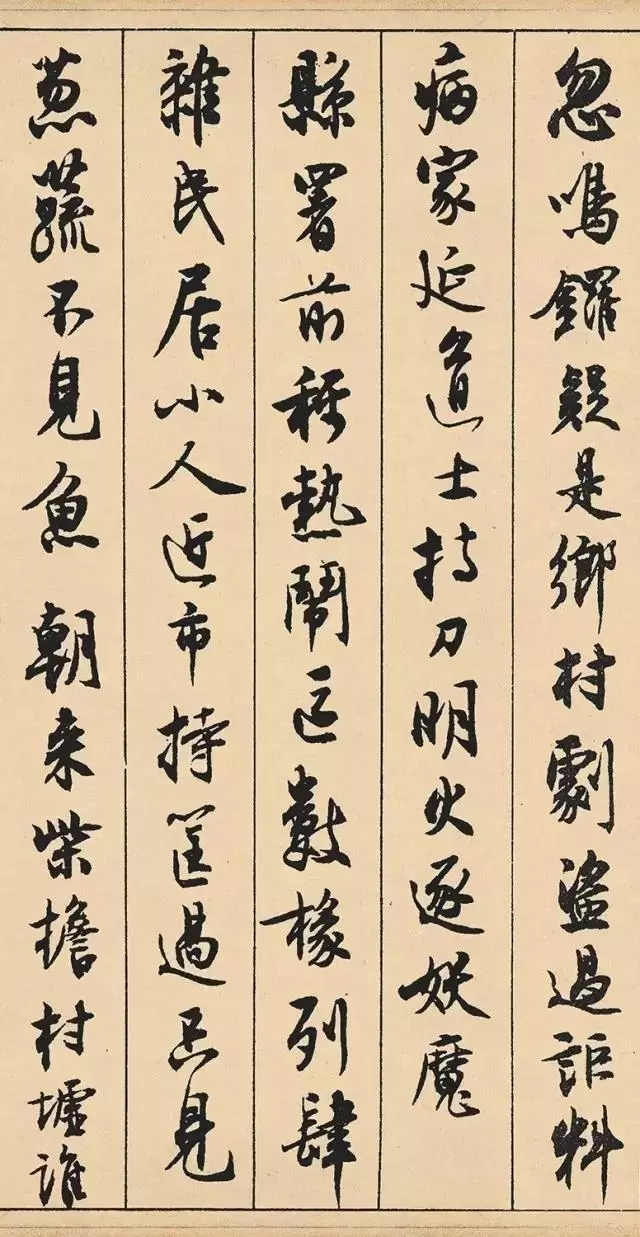 忽鳴鑼疑是鄉村劇盜過詎料
病家延道士持刀明火逐妖魔
縣署前稱熱鬧區數椽列肆
雜民居小人近市持筐過只見
葱蔬不見魚 朝来柴擔村墟誰